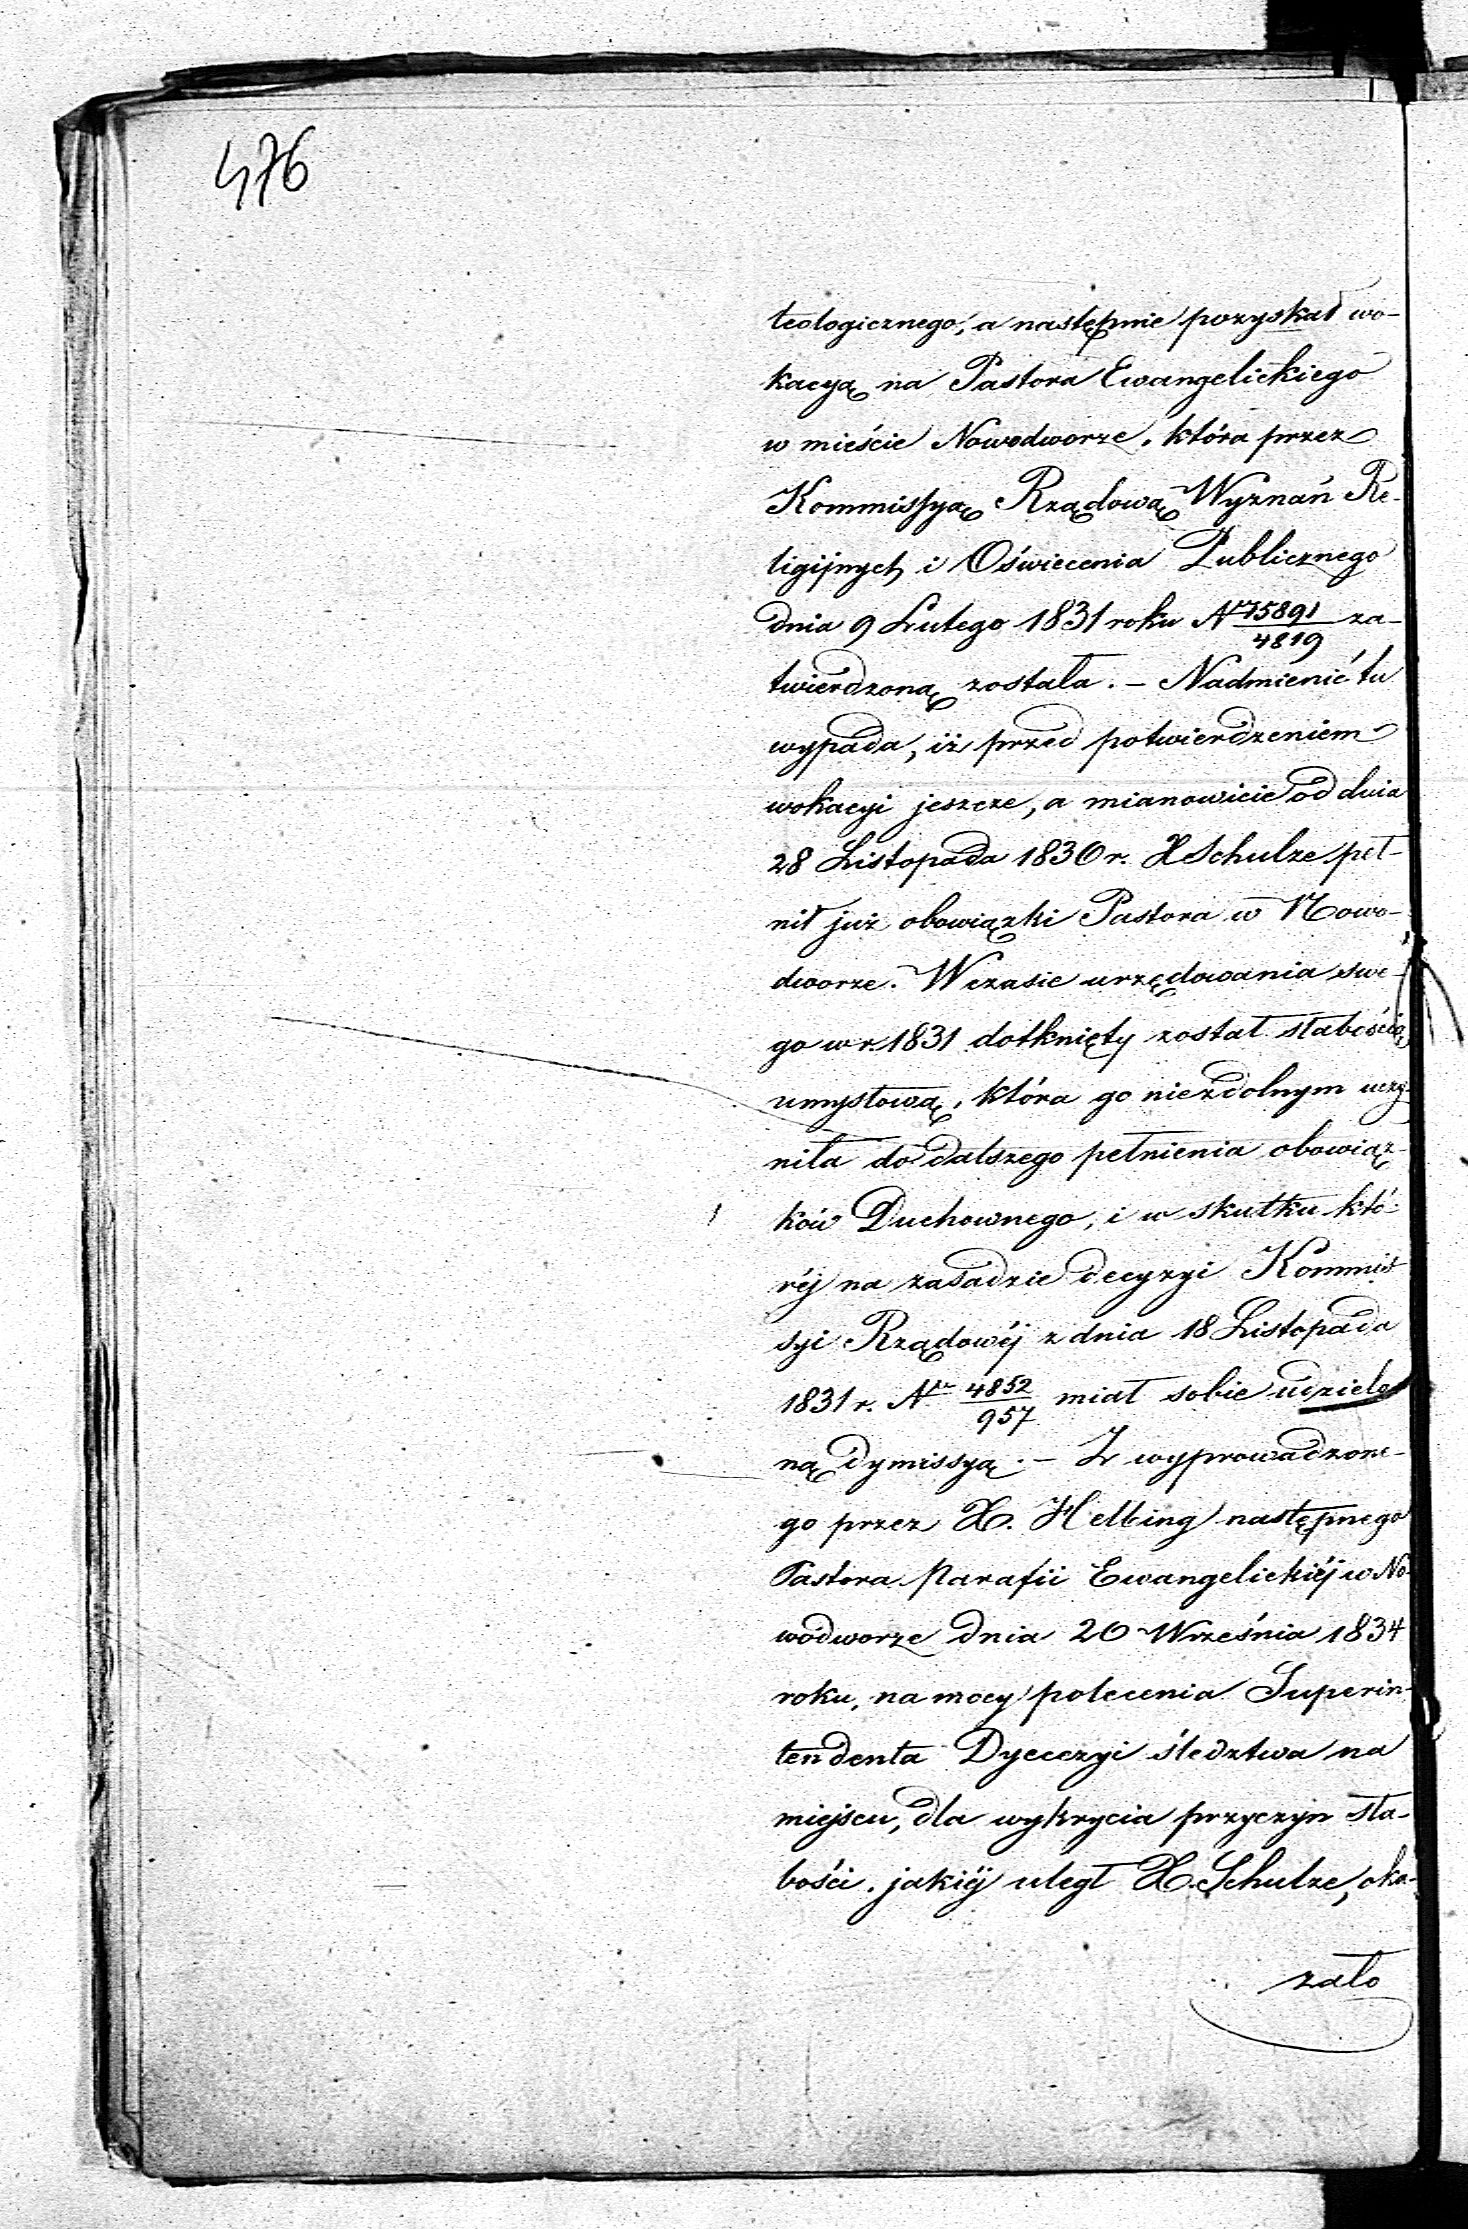 476
teologicznego, a następnie pozyskał wo-
kacyą na Pastora Ewangelickiego
w mieście Nowodworze, która przez
Kommissyą Rządową Wyznań Re-
ligijnych i Oświecenia Publicznego
dnia 9 Lutego 1831 roku Nr 15891/4819 za-
twierdzoną została. – Nadmienić tu
wypada, iż przed potwierdzeniem
wokacyi jeszcze, a mianowicie od dnia
28 Listopada 1830 r. X Schulze peł-
nił już obowiązki Pastora w Nowo-
dworze. W czasie urzędowania swe-
go w r. 1831 dotknięty został słabością
umysłową, która go niezdolnym uczy-
niła do dalszego pełnienia obowiąz-
ków Duchownego, i w skutku któ-
réj na zasadzie decyzyi Kommis-
syi Rządowéj z dnia 18 Listopada
1831 r. Nr 4852/957 miał sobie udzielo-
ną dymissyą. – Z wyprowadzone-
go przez X. Helbing następnego
Pastora Parafii Ewangelickiéj w No-
wodworze dnia 20 Września 1834
roku, na mocy polecenia Superin-
tendenta Dyecezyi śledztwa na
miejscu, dla wykrycia przyczyn sła-
bości, jakiéj uległ X. Schulze, oka-
zało